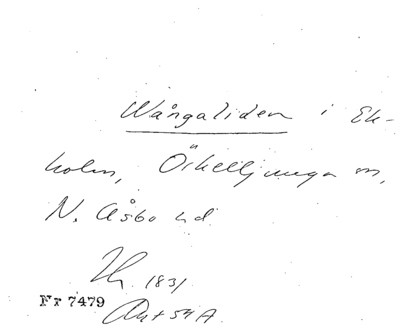 Wångaliden i Ek-
holm, Örkelljunga sn,
N. Åsbo hd
1831
Fr 7479
Akt 54 A.